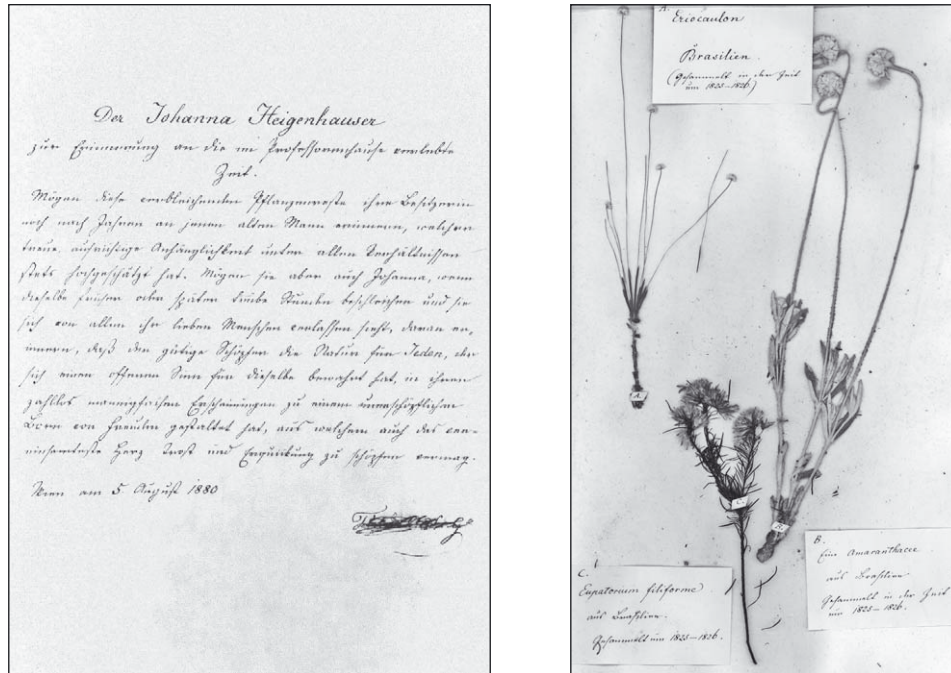 Der Johanna Heigenhauser
zur Erinnerung an die im Professorenhause verlebte
Zeit.
Mögen diese verbleichenden Pflanzenreste ihre Besitzerin
noch nach Jahren an jenen alten Mann erinnern, welcher
treue, aufrichtige Anhänglichkeit unter allen Verhältnissen
stets hochgeschätzt hat. Mögen sie aber auch Johanna, wenn
dieselbe früher oder später trübe Stunden beschleichen und sie
sich von allen ihr lieben Menschen verlassen sieht, daran er,
innern, daß der gütige Schöpfer die Natur für Jeden, der
sich einen offenen Sinn für dieselbe bewahrt hat, in ihren
zahllos mannigfachen Erscheinungen zu einem unerschöpflichen
Born von Freuden gestaltet hat, aus welchem auch das ver-
einsamteste Herz Trost und Erquickung zu schöpfen vermag.
Wien am 5. August 1880
A.
Eriocaulon
Brasilien.
(Gesammelt in der Zeit
um 1825-1826)
A.
C.
B.
B.
Eine Amaranthacee
aus Brasilien
Gesammelt in der Zeit
um 1825-1826.
C.
Eupatorium filiforme
aus Brasilien.
Gesammelt um 1825-1826.